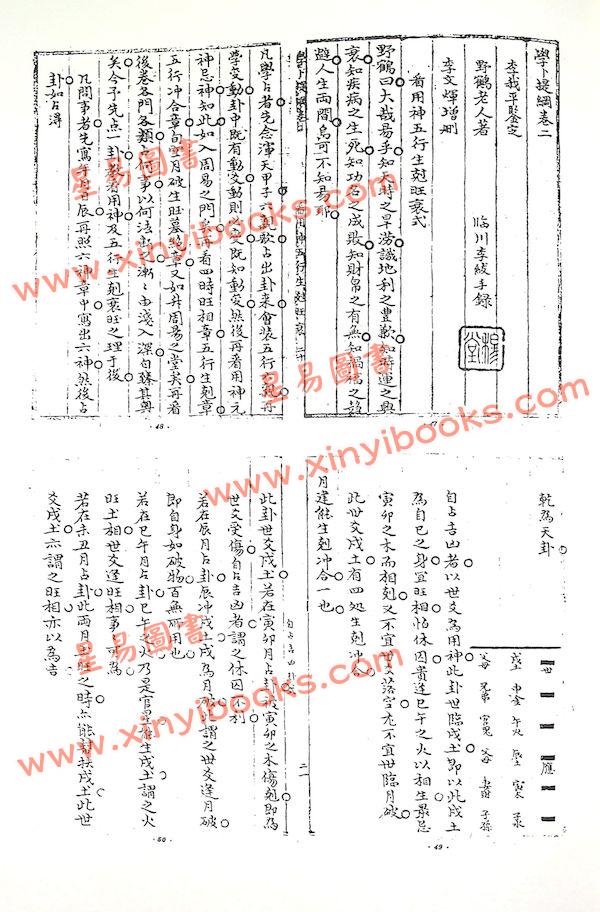 學卜提綱卷二
李我平鑒定
野鶴老人著
臨川李紱手錄
李文輝增刪
看用神五行生剋旺衰式
野鶴曰大哉易乎知天時之旱澇識地利之豐歉知時運之興
衰知疾病之生死知功名之成敗知財帛之有無知禍福之趨
避人生兩間烏可不知易耶
47
凡學占者先念渾天甲子六親歌占出卦來會裝五行六親再
學交動卦中既有動爻動則變爻既知動變然後再看用神元
神忌神知此如入周易之門矣再看四時旺相章五行生剋章
五行冲合章旬空月破生旺墓絕章又如升周易之堂矣再看
後卷各門各類占何事以何法斷之漸漸由淺入深自臻其奧
矣今予先点一卦教看用神及五行生剋衰旺之理于後
凡問事者先寫年月日辰再照六神章中寫出六神然後占
卦如占得
48
乾為天卦
世 應
戌土 申金 午火 辰土 寅木 子水
父母 兄弟 官鬼 父母 妻財 子孫
自占吉凶者以世爻為用神此卦世臨戌土即以此戌土
為自己之身宜旺相怕休囚貴逢巳午之火以相生最忌
寅卯之木而相剋又不宜世爻落空尤不宜世臨月破
此世爻戌土有四處生剋冲合
月建能生剋冲合一也
49
自占吉凶
二一
此卦世爻戌土若在寅卯月占卦被寅卯之木傷剋即為
世爻受傷自占吉凶者謂之休囚不利
若在辰月占卦辰冲戌土戌為月破此謂之世爻逢月破
即自身如破物百無破用也
若在巳午月占卦巳午之火乃是官星旺生戌土謂之火
旺土相世爻逢旺相事事可為
若在未丑月占卦此兩月土旺之時亦能幫扶戌土此世
爻戌土亦謂之旺相亦以為吉
50
皇易圖書
www.xinyibooks.com
皇易圖書
www.xinyibooks.com
皇易圖書
www.xinyibooks.com
皇易圖書
www.xinyibooks.com